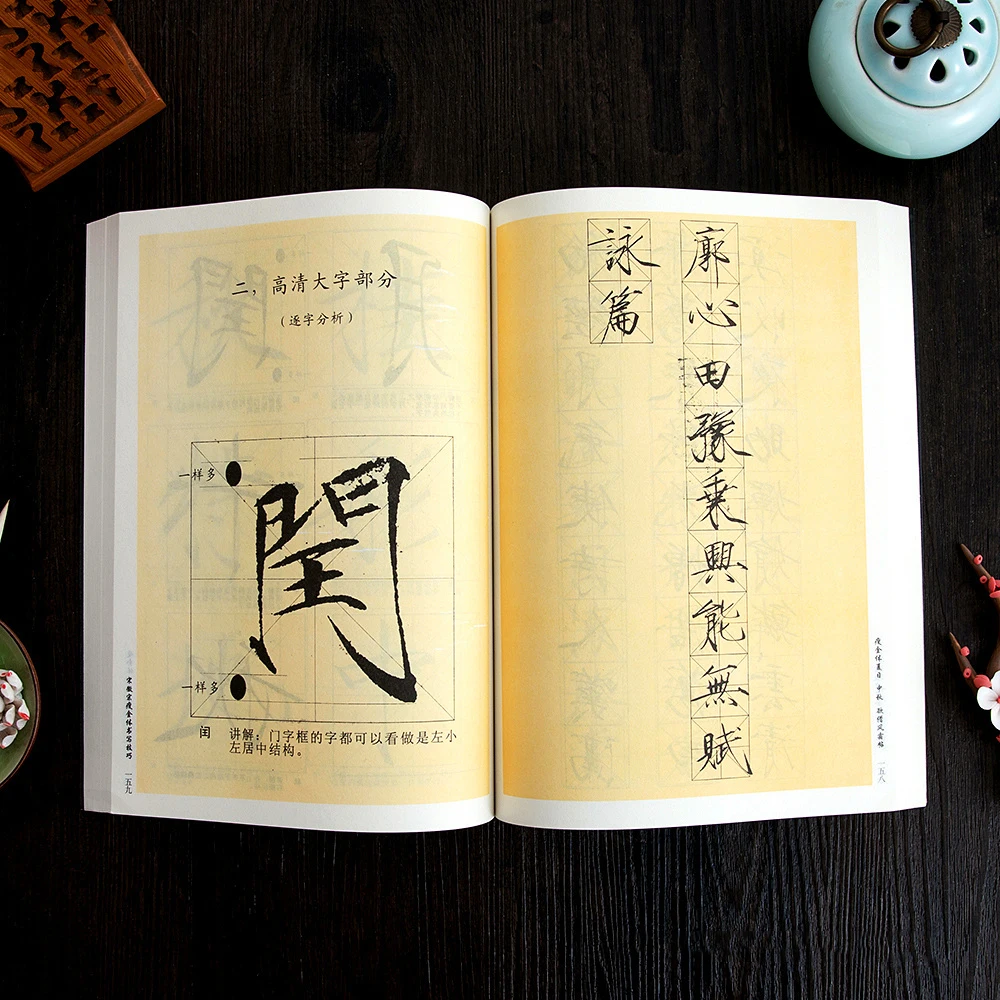 廓心田豫乘興能無賦
詠篇
瘦金体夏日 中秋 欲借风霜帖
一五八
二，高清大字部分
（逐字分析）
一样多
閏
一样多
闰 讲解：门字框的字都可以看做是左小
左居中结构。
宋徽宗瘦金体书写技巧
一五九